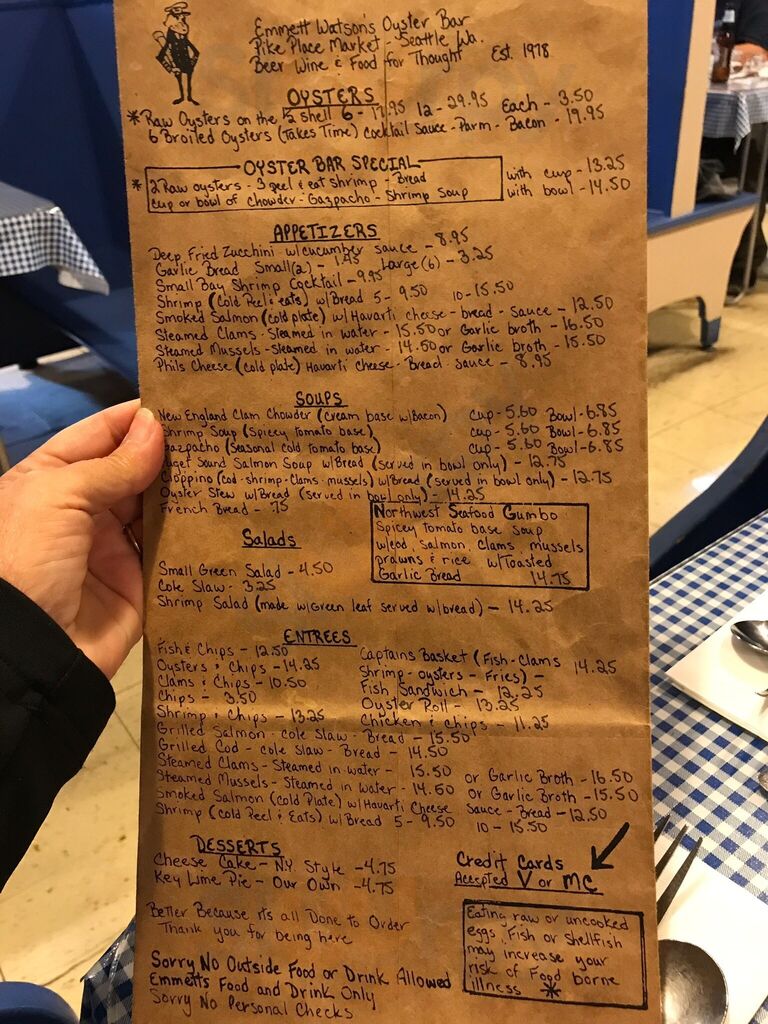 Emmett Watson's Oyster Bar
Pike Place Market - Seattle Wa.
Beer Wine & Food for Thought Est. 1978
OYSTERS
*Raw Oysters on the ½ shell 6 - 17.95 12 - 29.95 Each - 3.50
6 Broiled Oysters (Takes Time) Cocktail Sauce - Parm - Bacon - 19.95
OYSTER BAR SPECIAL
* 2 Raw oysters - 3 peel & eat shrimp - Bread with cup - 13.25
cup or bowl of chowder - Gazpacho - Shrimp Soup with bowl - 14.50
APPETIZERS
Deep Fried Zucchini w/cucumber sauce - 8.95
Garlic Bread Small(2) - 1.95 Large(6) - 3.25
Small Bay Shrimp Cocktail - 9.95
Shrimp (Cold Peel & eats) w/Bread 5 - 9.50 10 - 15.50
Smoked Salmon (cold plate) w/Havarti cheese - bread - sauce - 12.50
Steamed Clams - Steamed in water - 15.50 or Garlic broth - 16.50
Steamed Mussels - steamed in water - 14.50 or Garlic broth - 15.50
Phils Cheese (cold plate) Havarti cheese - Bread - sauce - 8.95
SOUPS
New England Clam Chowder (cream base w/Bacon) Cup - 5.60 Bowl - 6.85
Shrimp Soup (Spicey tomato base) Cup - 5.60 Bowl - 6.85
Gazpacho (Seasonal cold tomato base) Cup - 5.60 Bowl - 6.85
Puget Sound Salmon Soup w/Bread (served in bowl only) - 12.75
Cioppino (cod - shrimp - clams - mussels) w/Bread (served in bowl only) - 12.75
Oyster Stew w/Bread (served in bowl only) - 14.25
French Bread - .75
Northwest Seafood Gumbo
Spicey tomato base Soup
w/cod, salmon, clams, mussels
prawns & rice w/Toasted
Garlic Bread 14.75
Salads
Small Green Salad - 4.50
Cole Slaw - 3.25
Shrimp Salad (made w/Green leaf served w/bread) - 14.25
ENTREES
Fish & Chips - 12.50
Oysters & Chips - 14.25
Clams & Chips - 10.50
Chips - 3.50
Shrimp & Chips - 13.25
Captains Basket (Fish - Clams
Shrimp - oysters - Fries) - 14.25
Fish Sandwich - 12.25
Oyster Poll - 13.25
Chicken & Chips - 11.25
Grilled Salmon - cole slaw - Bread - 15.50
Grilled Cod - cole slaw - Bread - 14.50
Steamed Clams - Steamed in water - 15.50 or Garlic Broth - 16.50
Steamed Mussels - Steamed in water - 14.50 or Garlic Broth - 15.50
Smoked Salmon (cold Plate) w/Havarti Cheese Sauce - Bread - 12.50
Shrimp (cold Peel & Eats) w/Bread 5 - 9.50 10 - 15.50
DESSERTS
Cheese Cake - N.Y. Style - 4.75
Key Lime Pie - Our Own - 4.75
Credit Cards
Accepted V or MC
Better Because it's all Done to Order
Thank you for being here
Sorry No Outside Food or Drink Allowed
Emmetts Food and Drink Only
Sorry No Personal Checks
Eating raw or uncooked
eggs, Fish or Shellfish
may increase your
risk of Food borne
illness *